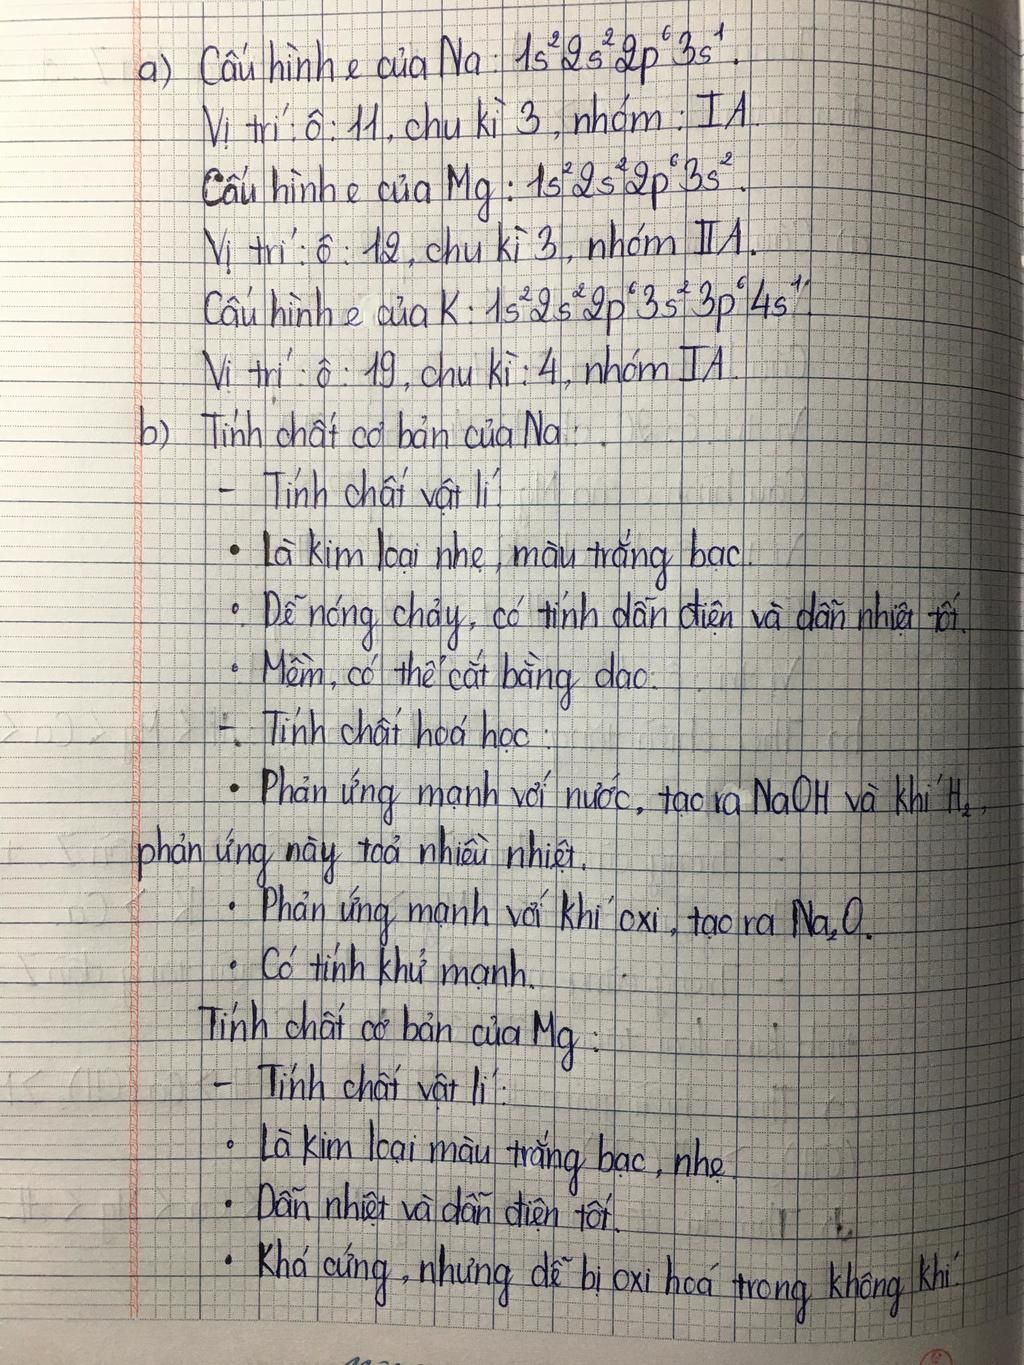 a) Cấu hình e của Na : 1s²2s²2p⁶3s¹.
Vị trí : ô : 11, chu kì 3, nhóm : IA.
Cấu hình e của Mg : 1s²2s²2p⁶3s².
Vị trí : ô : 12, chu kì 3, nhóm IIA.
Cấu hình e của K : 1s²2s²2p⁶3s²3p⁶4s¹.
Vị trí : ô : 19, chu kì : 4, nhóm IA.
b) Tính chất cơ bản của Na :
- Tính chất vật lí
• Là kim loại nhẹ, màu trắng bạc.
• Dễ nóng chảy, có tính dẫn điện và dẫn nhiệt tốt.
• Mềm, có thể cắt bằng dao.
- Tính chất hoá học :
• Phản ứng mạnh với nước, tạo ra NaOH và khí H₂,
phản ứng này toả nhiều nhiệt.
• Phản ứng mạnh với khí oxi, tạo ra Na₂O.
• Có tính khử mạnh.
Tính chất cơ bản của Mg :
- Tính chất vật lí :
• Là kim loại màu trắng bạc, nhẹ.
• Dẫn nhiệt và dẫn điện tốt.
• Khá cứng, nhưng dễ bị oxi hoá trong không khí.